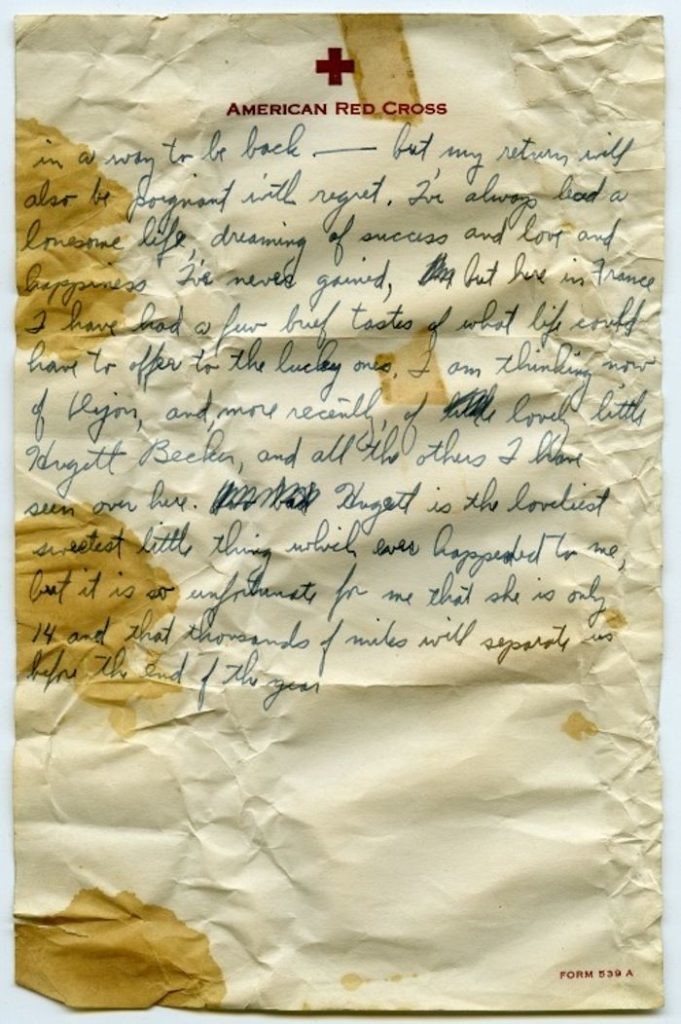 AMERICAN RED CROSS
in a way to be back — but my return will
also be poignant with regret. I've always lead a
lonesome life, dreaming of success and love and
happiness I've never gained, but here in France
I have had a few brief tastes of what life could
have to offer to the lucky ones. I am thinking now
of Dijon, and, more recently, of lovely little
Hugett Becker, and all the others I have
seen over here. Hugett is the loveliest
sweetest little thing which ever happended to me,
but it is so unfortunate for me that she is only
14 and that thousands of miles will separate us
before the end of the year
FORM 539 A